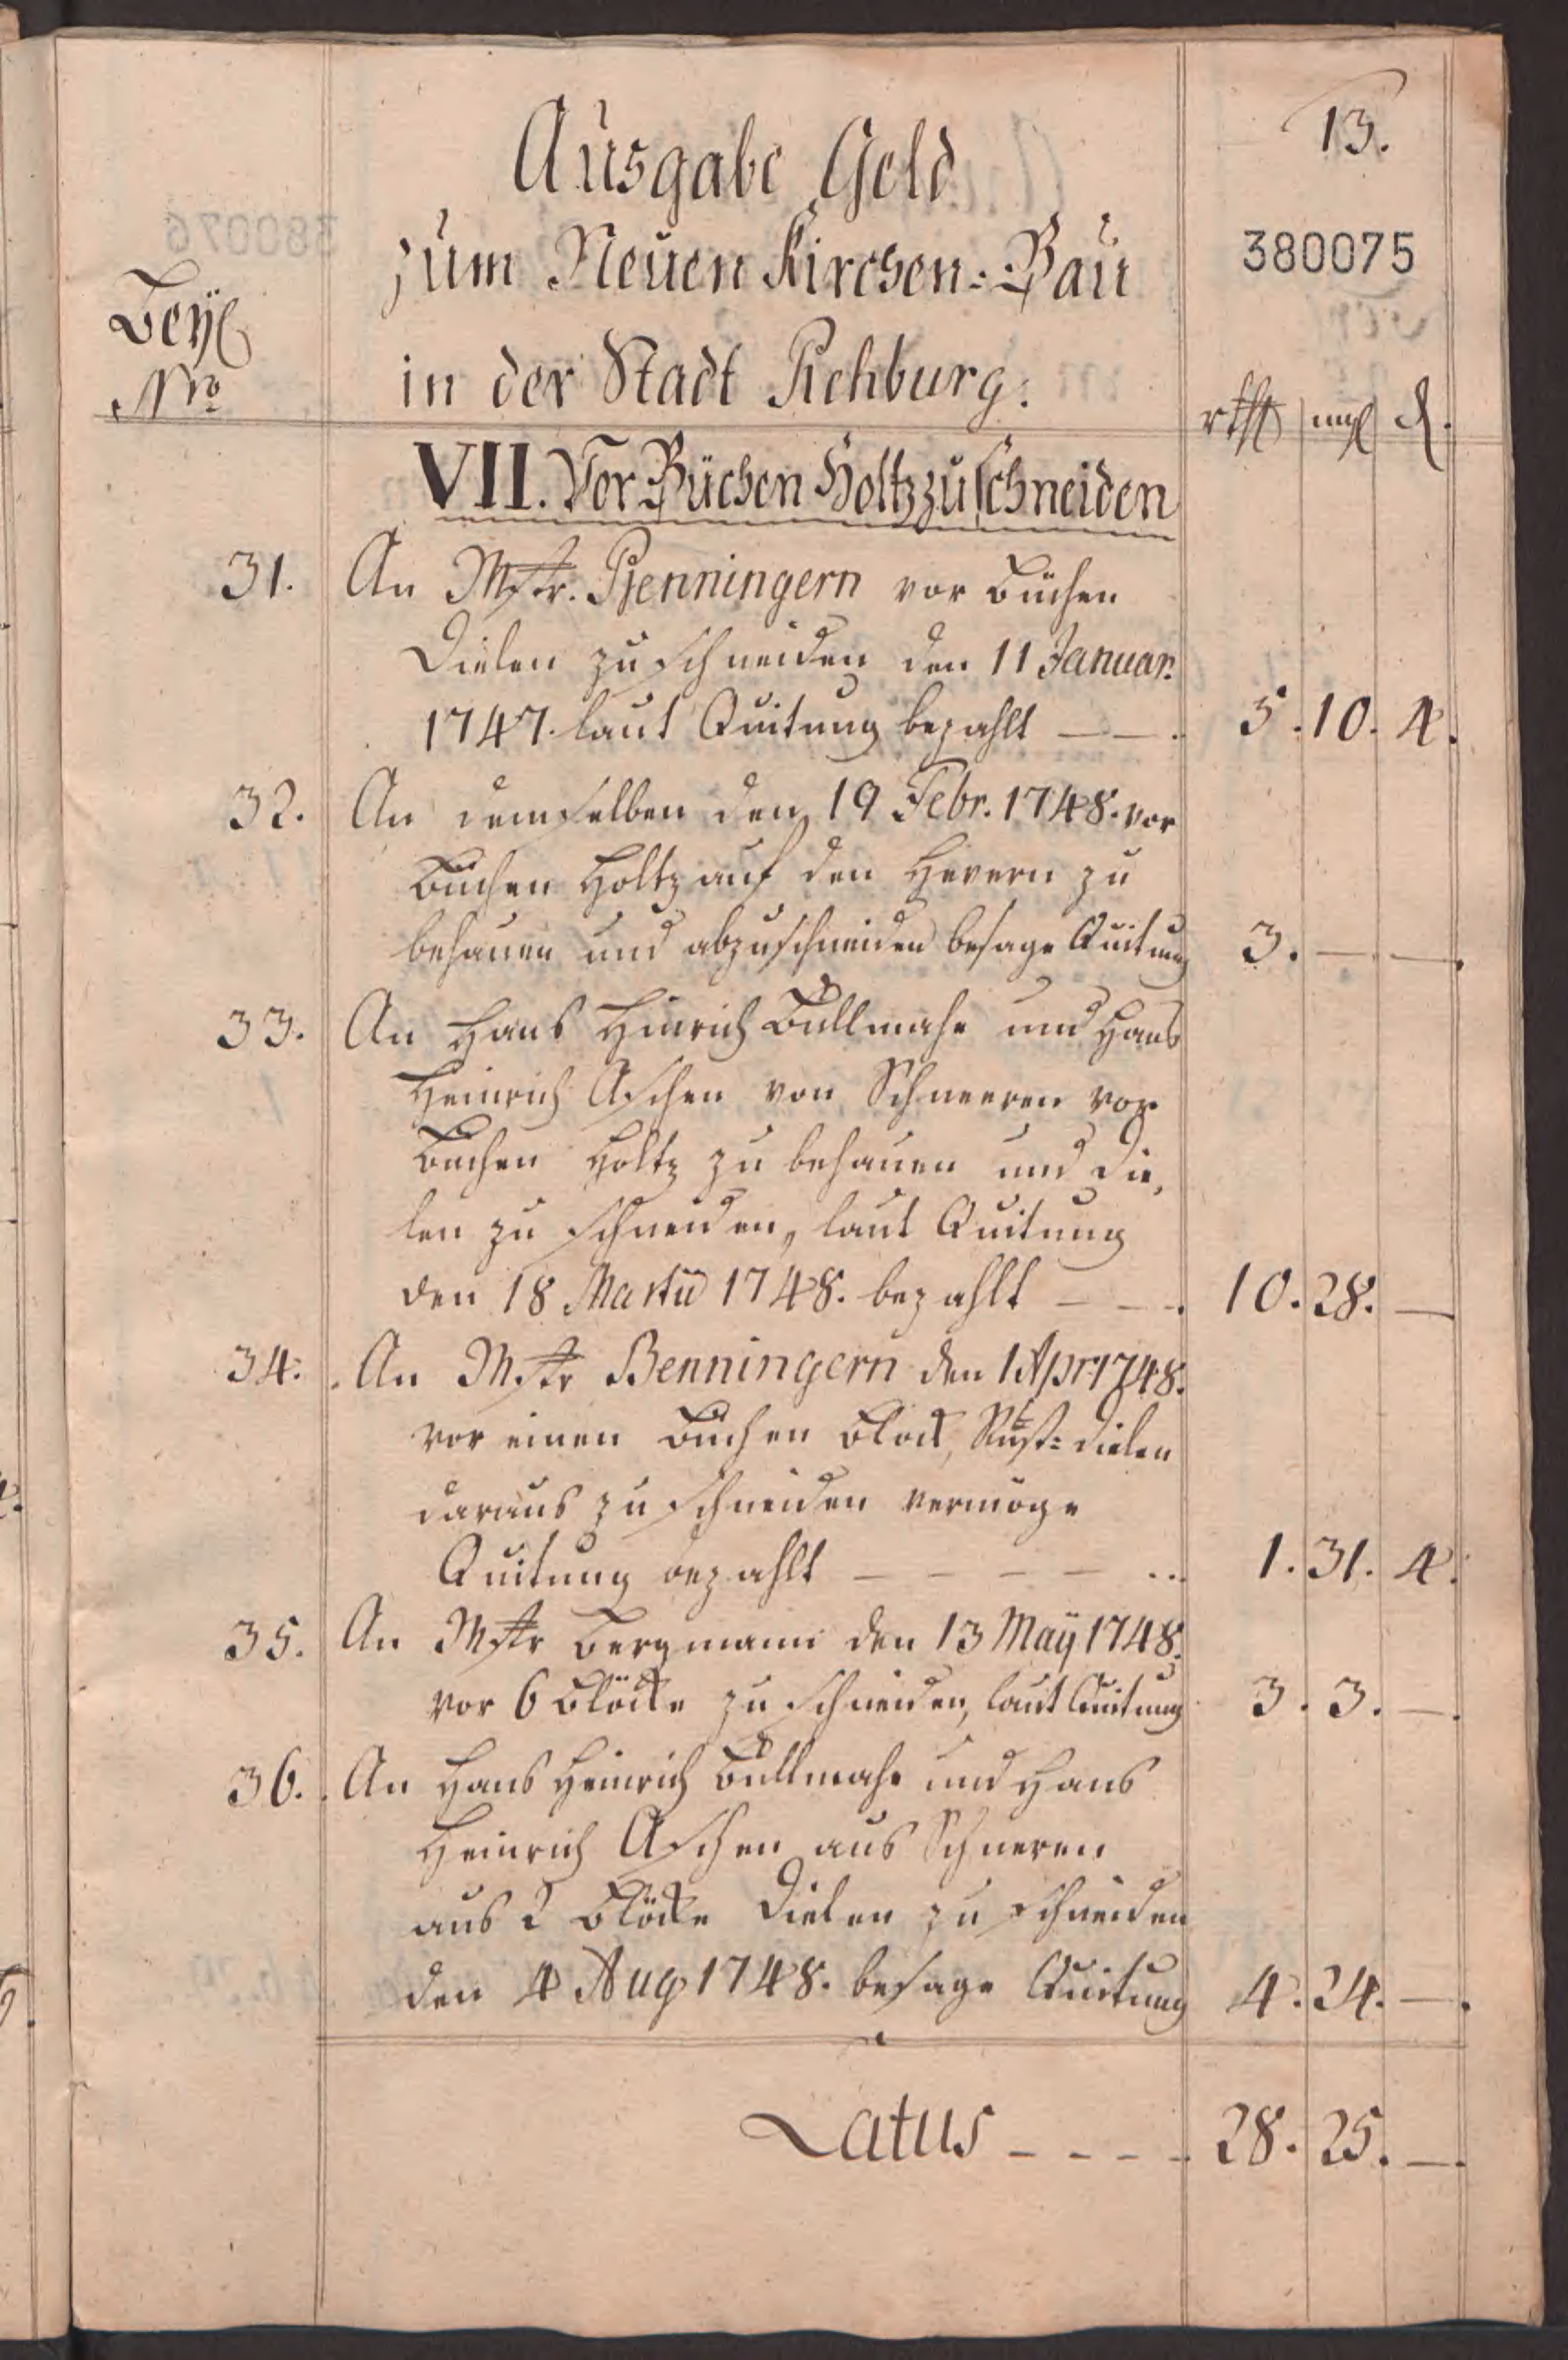 13.
Ausgabe Geld
380075
zum Neuen Kirchen-Bau
Beyl
in der Stadt Rehburg.
Nro
rthl mgl d.
VII. Vor Büchen Holtz zu schneiden
31. An Mstr. Penningern vor Büchen
Dielen zu schneiden den 11 Januar.
1747. laut Quitung bezahlt — — . 5. 10. 4.
32. An demselben den 19 Febr. 1748. vor
Büchen Holtz auf den Hevern zu
behauen und abzuschneiden besage Quitung 3. — —.
33. An Hans Hinrich Bullmahn und Hans
Heinrich Aschen von Schneeren vor
Büchen Holtz zu behauen und Die,
len zu schneiden, laut Quitung
den 18 Martii 1748. bezahlt — — . 10. 28. —
34. An Mstr Benningern den 1 Apr 1748.
vor einen Büchen Block, Rüst= Dielen
daraus zu schneiden vermöge
Quitung bezahlt — — — — .. 1. 31. 4.
35. An Mstr Bergmann den 13 Maÿ 1748.
vor 6 Blöcke zu schneiden, laut Quitung 3. 3. —.
36. An Hans Heinrich Bullmahn und Hans
Heinrich Aschen aus Schneren
aus 2 Blöcke Dielen zu schneiden
den 4 Aug 1748. besage Quitung 4. 24. —.
Latus - - - - 28. 25. —.